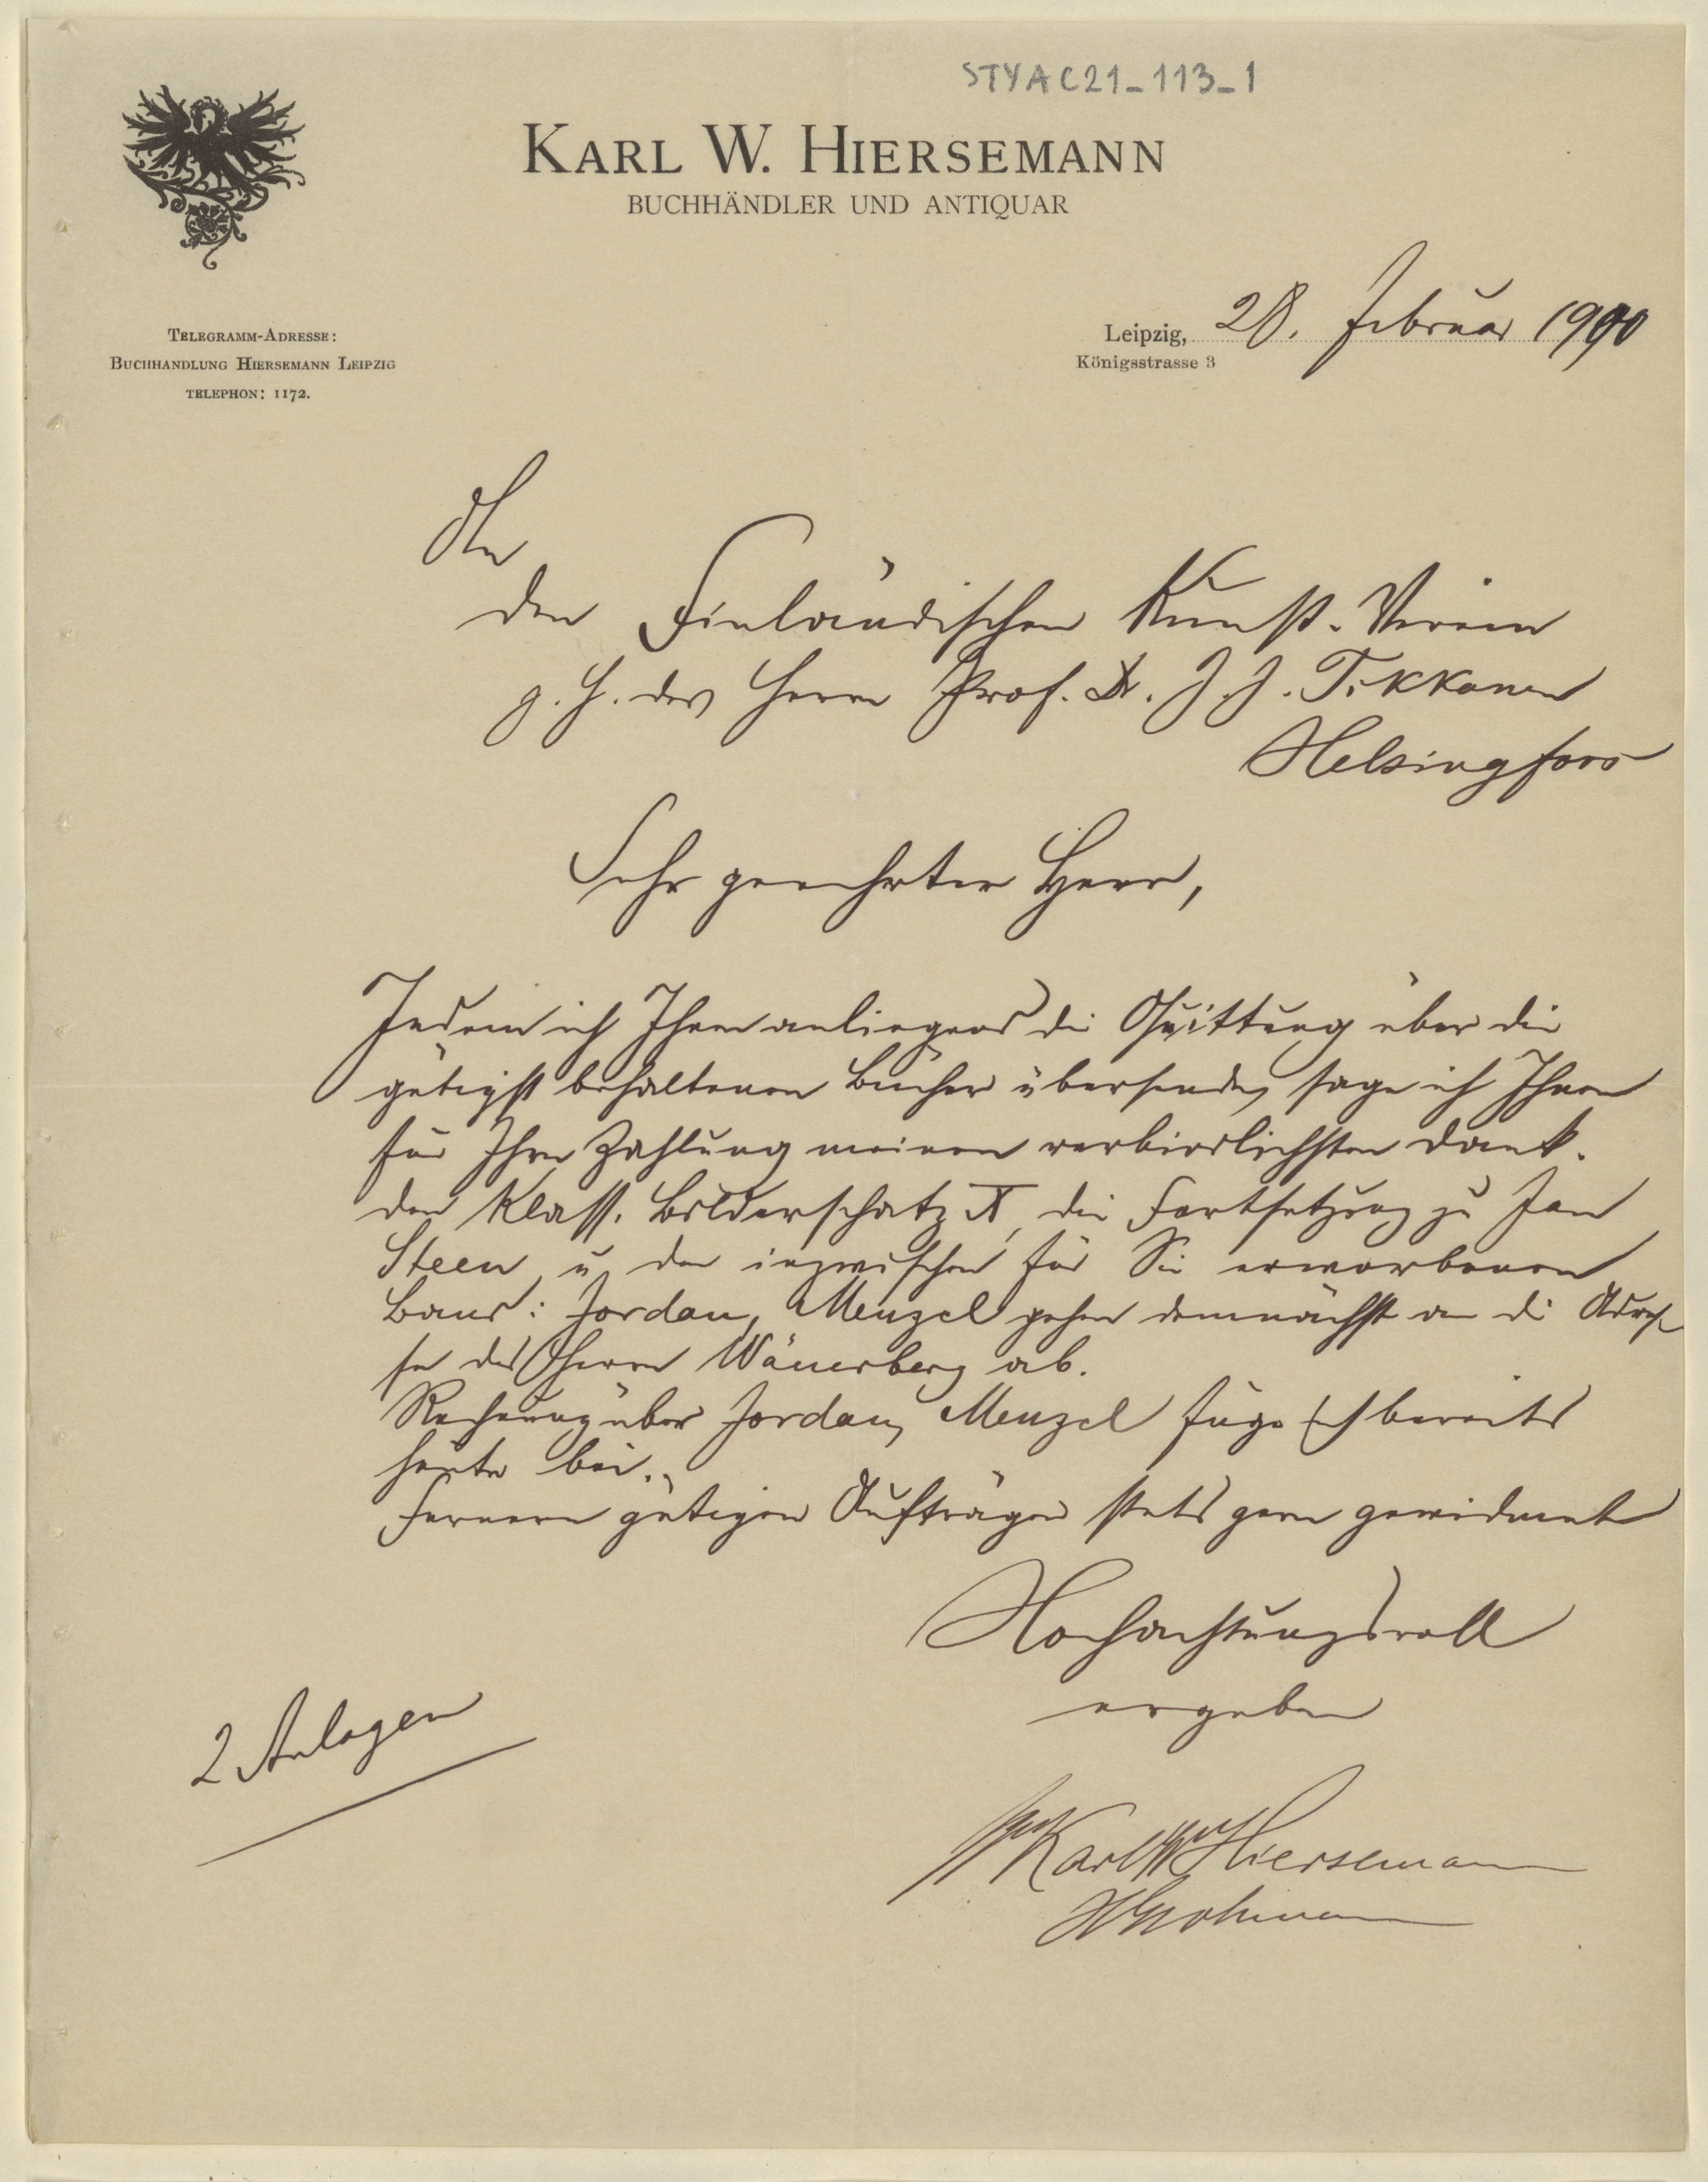 STYAC21_113_1
KARL W. HIERSEMANN
BUCHHÄNDLER UND ANTIQUAR
TELEGRAMM-ADRESSE:
BUCHHANDLUNG HIERSEMANN LEIPZIG
TELEPHON: 1172.
Leipzig, 28. Februar 1900
Königsstrasse 3
An
den Finländischen Kunst-Verein
z. H. des Herrn Prof. Dr. J. J. Tikkanen
Helsingfors
Sehr geehrter Herr,
Indem ich Ihnen anliegend die Quittung über die
gütigst behaltenen Bücher übersende, sage ich Ihnen
für Ihre Zahlung meinen verbindlichsten Dank.
Der Klass. Bilderschatz X, die Fortsetzung zu Jan
Steen, u. der inzwischen für Sie erworbenen
Band: Jordan, Menzel gehen demnächst an die Adres-
se des Herrn Wänerberg ab.
Rechnung über Jordan, Menzel füge ich bereits
heute bei.
Fernern gütigen Aufträgen stets gern gewidmet
Hochachtungsvoll
ergeben
2 Anlagen
Karl W Hiersemann